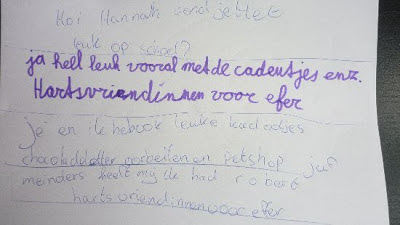 Hoi Hannah vend jettet
leuk op school?
ja heel leuk vooral met de cadeutjes enz.
Hartsvriendinnen voor efer
je en ik heb ook leuke kadootjes
chocoladeletter en petshop juf
meinders heeft mij de had
hartsvriendinnen voor efer